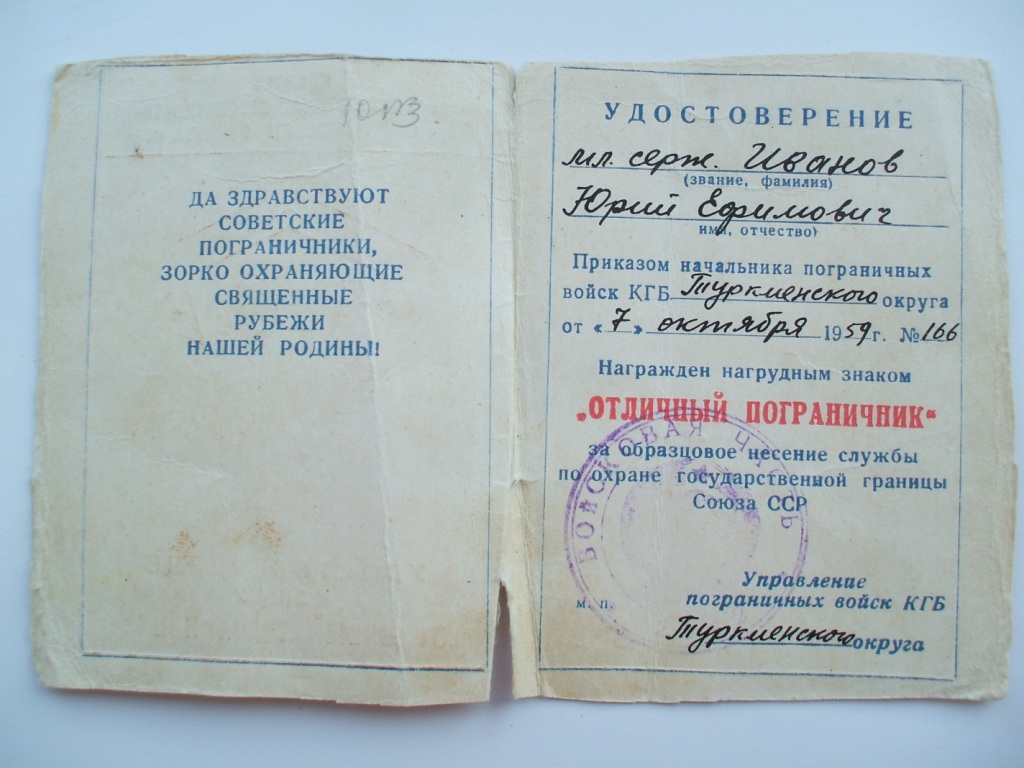 ДА ЗДРАВСТВУЮТ
СОВЕТСКИЕ
ПОГРАНИЧНИКИ,
ЗОРКО ОХРАНЯЮЩИЕ
СВЯЩЕННЫЕ
РУБЕЖИ
НАШЕЙ РОДИНЫ!
УДОСТОВЕРЕНИЕ
мл. серж. Иванов
(звание, фамилия)
Юрий Ефимович
имя, отчество)
Приказом начальника пограничных
войск КГБ Туркменского округа
от «7» октября 1959 г. № 166
Награжден нагрудным знаком
„ОТЛИЧНЫЙ ПОГРАНИЧНИК“
за образцовое несение службы
по охране государственной границы
Союза ССР
ВОЙСКОВАЯ ЧАСТЬ
Управление
м. п. пограничных войск КГБ
Туркменского округа